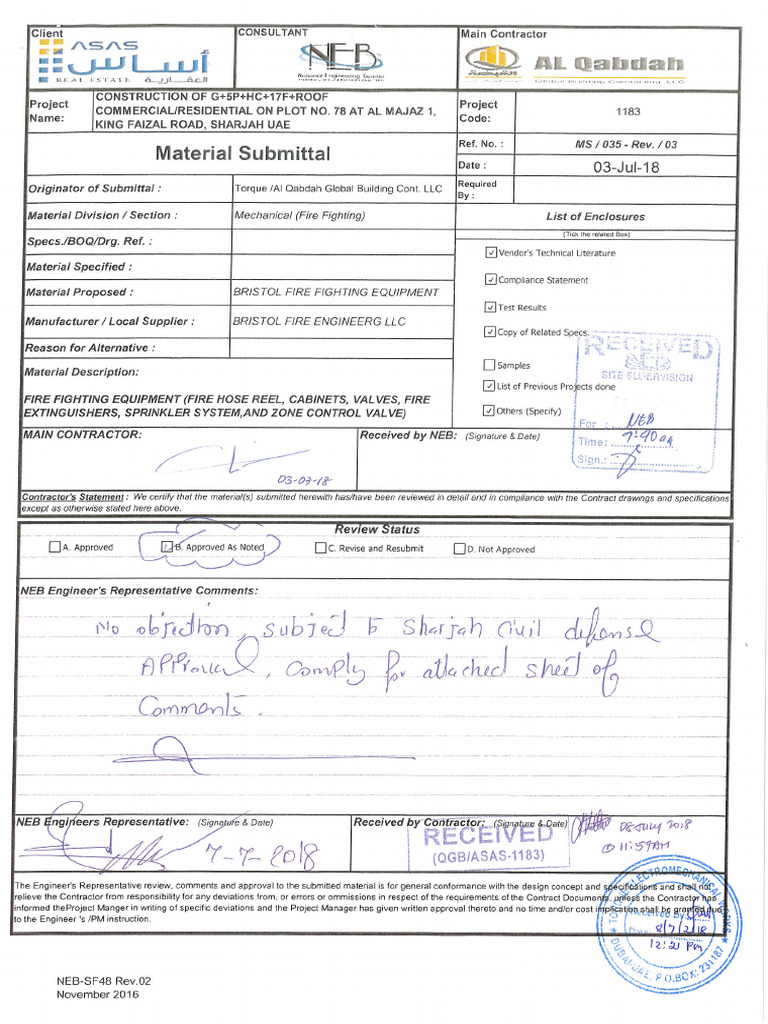 Client
CONSULTANT
Main Contractor
ASAS
أساس
REAL ESTATE العقارية
NEB
National Engineering Bureau
AL Qabdah
Global Building Contracting LLC
Project Name:
CONSTRUCTION OF G+5P+HC+17F+ROOF
COMMERCIAL/RESIDENTIAL ON PLOT NO. 78 AT AL MAJAZ 1,
KING FAIZAL ROAD, SHARJAH UAE
Project Code:
1183
Material Submittal
Ref. No. :
MS / 035 - Rev. / 03
Date :
03-Jul-18
Originator of Submittal :
Torque /Al Qabdah Global Building Cont. LLC
Required By :
Material Division / Section :
Mechanical (Fire Fighting)
List of Enclosures
(Tick the related Box)
Specs./BOQ/Drg. Ref. :
Vendor's Technical Literature
Material Specified :
Compliance Statement
Material Proposed :
BRISTOL FIRE FIGHTING EQUIPMENT
Test Results
Manufacturer / Local Supplier :
BRISTOL FIRE ENGINEERG LLC
Copy of Related Specs.
Reason for Alternative :
Samples
Material Description:
List of Previous Projects done
FIRE FIGHTING EQUIPMENT (FIRE HOSE REEL, CABINETS, VALVES, FIRE
EXTINGUISHERS, SPRINKLER SYSTEM,AND ZONE CONTROL VALVE)
Others (Specify)
RECEIVED
SITE SUPERVISION
For : NEB
Time: 7:40 am
Sign.:
MAIN CONTRACTOR:
Received by NEB: (Signature & Date)
03-07-18
Contractor's Statement : We certify that the material(s) submitted herewith has/have been reviewed in detail and in compliance with the Contract drawings and specifications
except as otherwise stated here above.
Review Status
A. Approved
B. Approved As Noted
C. Revise and Resubmit
D. Not Approved
NEB Engineer's Representative Comments:
No objection, subject to Sharjah Civil defense
Approval, Comply for attached sheet of
Comments.
NEB Engineers Representative: (Signature & Date)
7-7-2018
Received by Contractor: (Signature & Date)
RECEIVED
(QGB/ASAS-1183)
08 July 2018
@ 11:59AM
The Engineer's Representative review, comments and approval to the submitted material is for general conformance with the design concept and specifications and shall not
relieve the Contractor from responsibility for any deviations from, or errors or ommissions in respect of the requirements of the Contract Documents, unless the Contractor has
informed theProject Manger in writing of specific deviations and the Project Manager has given written approval thereto and no time and/or cost implication shall be granted due
to the Engineer 's /PM instruction.
TORQUE ELECTROMECHANICAL WORKS
Received By
Date 8/7/2018
12:21 Pm
DUBAI-UAE, P.O.BOX: 231187
NEB-SF48 Rev.02
November 2016